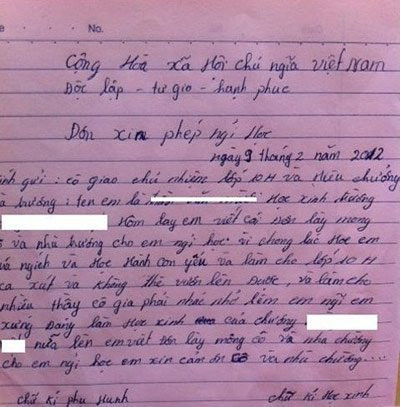 No.
Cộng Hòa xã Hôi chủ ngĩa việt Nam
Độc lập - tự gio - hạnh phuc
Đơn xin phép ngỉ Học
ngày 9 tháng 2 năm 2012
ính gửi: cô giao chủ nhiêm lớp 10H và Hiêu chưởng
à trường: tên em là Học xinh trường
Hôm lay em viết cái Đơn lày mong
ô và nhà trường cho em ngỉ học vì chong lúc Học em
uá ngịch và Học Hành con yếu và làm cho lớp 10 H
ca xút và không thể vươn lên Được, và làm cho
nhiều thầy cô gia phải nhac nhở lêm em ngĩ em
xứng Đáng làm Học xinh của chường
nữa lên em viết đơn lày mông cô và nha chường
cho em ngỉ học em xin cám ơn cô và nhà chường....
chữ kí phu Huynh chữ kí Học xinh